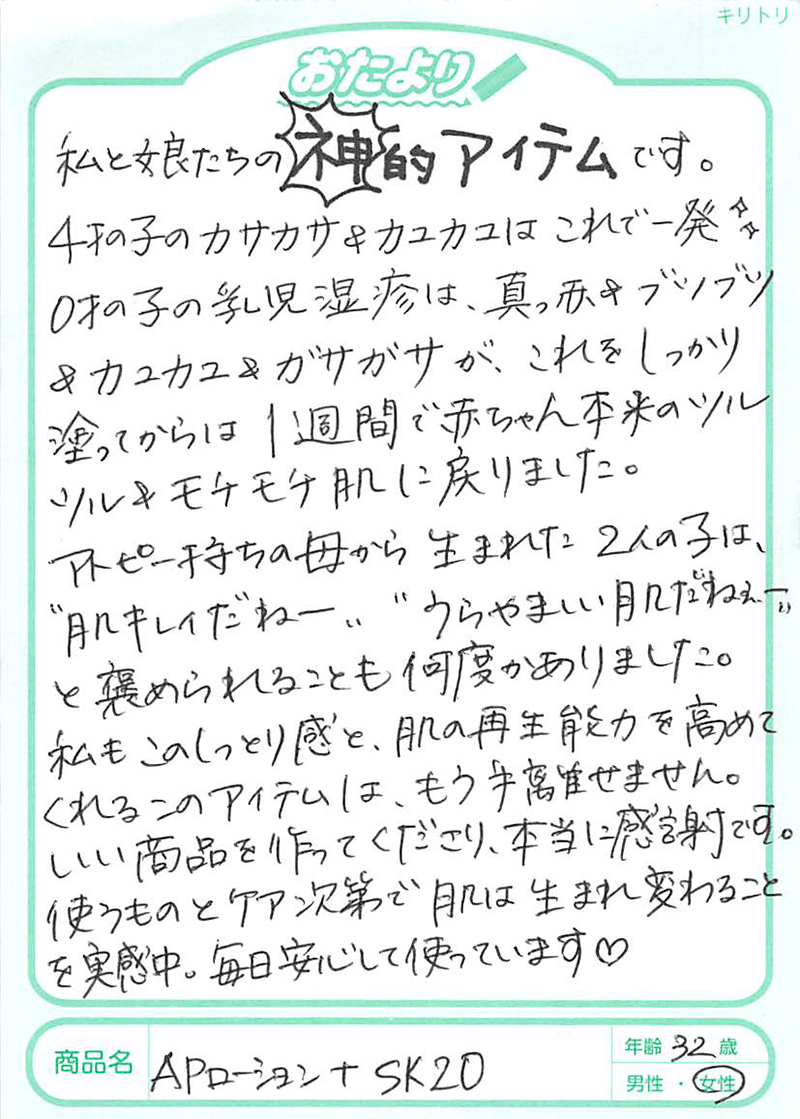 キリトリ
おたより
私と娘たちの神的アイテムです。
4才の子のカサカサ&カユカユはこれで一発
0才の子の乳児湿疹は、真っ赤&ブツブツ
&カユカユ&ガサガサが、これをしっかり
塗ってからは1週間で赤ちゃん本来のツル
ツル&モチモチ肌に戻りました。
アトピー持ちの母から生まれた2人の子は、
"肌キレイだねー" "うらやまいい肌だねぇー"
と褒められることも何度かありました。
私もこのしっとり感と、肌の再生能力を高めて
くれるこのアイテムは、もう手離せません。
いい商品を作ってくださり、本当に感謝です。
使うものとケアン次第で肌は生まれ変わること
を実感中。毎日安心して使っています♡
商品名 APローション+SK20
年齢 32歳
男性・女性